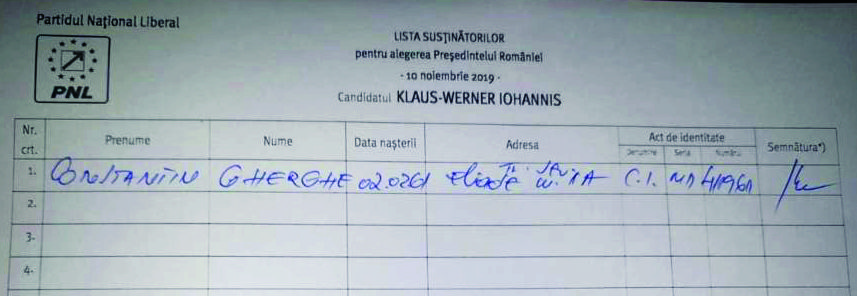 Partidul Național Liberal
PNL
LISTA SUSȚINĂTORILOR
pentru alegerea Președintelui României
- 10 noiembrie 2019 -
Candidatul KLAUS-WERNER IOHANNIS
Nr. crt. Prenume Nume Data nașterii Adresa Act de identitate Semnătura*)
Denumire Seria Număru
1. CONSTANTIN GHERGHE 02.0261 C.I.
2.
3.
4.